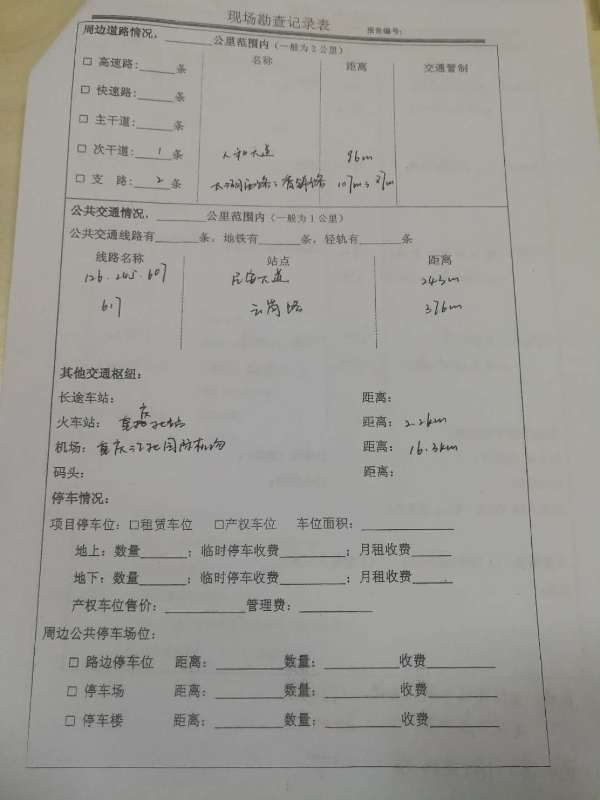 现场勘查记录表
报告编号:
周边道路情况,______公里范围内(一般为2公里)
名称 距离 交通管制
□ 高速路:_____条
□ 快速路:_____条
□ 主干道:_____条
□ 次干道: 1 条 人和大道 96m
□ 支 路: 2 条 107m、
公共交通情况,______公里范围内(一般为1公里)
公共交通线路有______条, 地铁有______条, 轻轨有______条
线路名称 站点 距离
126.245.607 民安大道 243m
617 云岗路 376m
其他交通枢纽:
长途车站: 距离:
火车站: 重庆北站 距离: 2.2km
机场: 重庆江北国际机场 距离: 16.3km
码头: 距离:
停车情况:
项目停车位: □租赁车位 □产权车位 车位面积:__________
地上: 数量______; 临时停车收费________; 月租收费_____
地下: 数量______; 临时停车收费________; 月租收费_____
产权车位售价:__________管理费:_________
周边公共停车场位:
□ 路边停车位 距离:________数量:_________收费________
□ 停车场 距离:________数量:_________收费________
□ 停车楼 距离:________数量:_________收费________